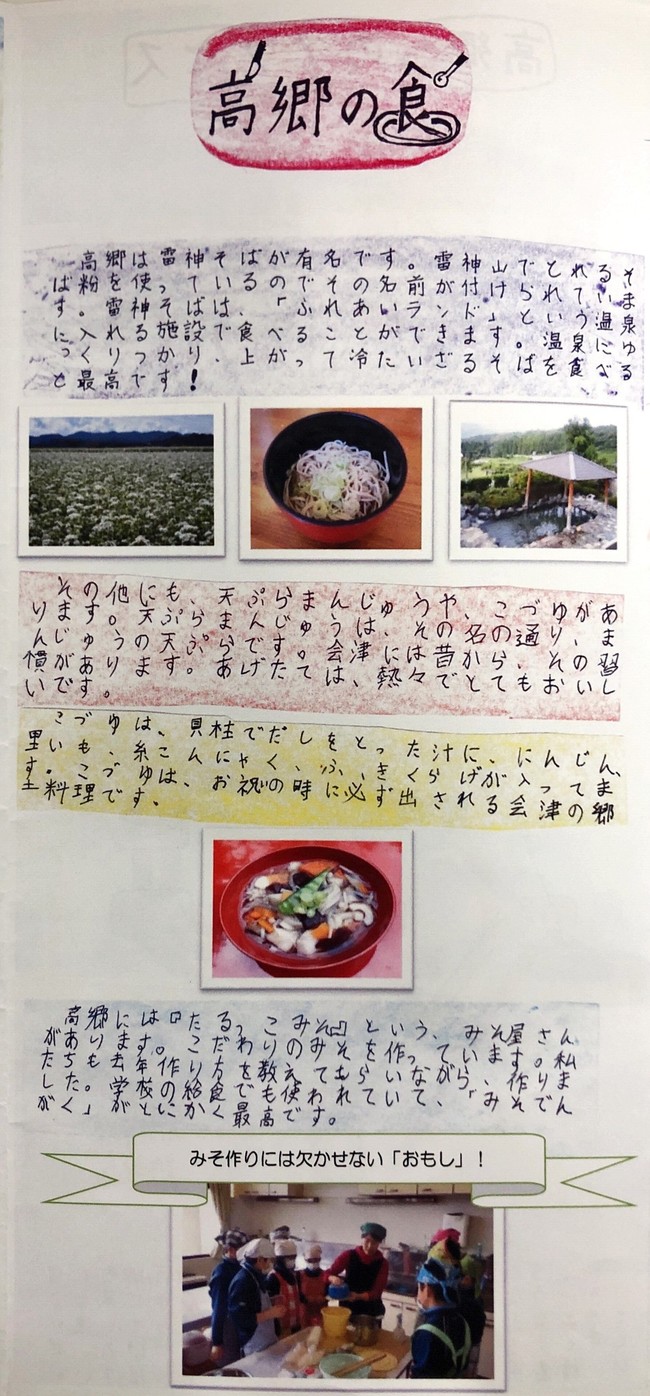 高郷の食
高郷は雷神そばが有名です。雷神山でとれるそ
ば粉を使っているのでその名前が付けられていま
す。雷神そばは、「ふれあいランド」という温泉
に入れる施設で食べることができます。温泉にゆ
っくりつかり、上がって冷たいざるそばを食べる、
と最高です!
その他にも、天ぷらまんじゅうや、こづゆがあ
ります。天ぷらまんじゅうは、その名の通り、ま
んじゅうの天ぷらです。会津には昔から、その習
慣があります。あげたては、熱々でとてもおいし
いです。
こづゆは、貝柱でだしをとった汁に、にんじん、
里いも、糸こんにゃく、ふ、きくらげが入ってま
す。こづゆは、お祝いの時に必ず出される会津の郷
土料理です。
高郷には『たるっこみそ』という、みそ屋さん
があります。こだわりのみそを作っています。私
たちも去年作り方を教えてもらいながら、作りま
した。学校の給食でも使われていて、「みそでん
がく」がとにかく最高です。
みそ作りには欠かせない「おもし」！